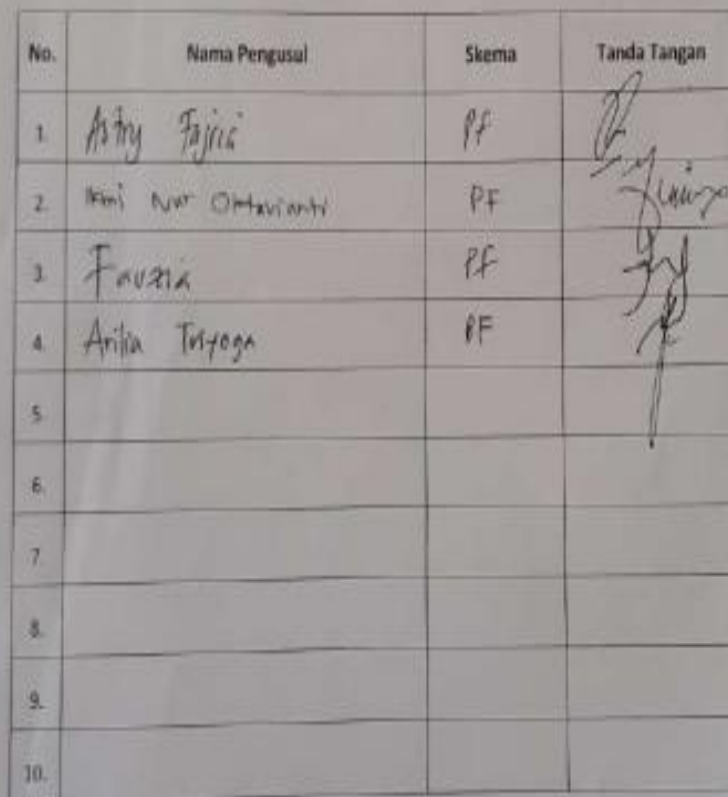 No. Nama Pengusul Skema Tanda Tangan
1. Astry Fajria Pf
2. Ikmi Nur Oktavianti PF
3. Fauzia PF
4. Arilia Triyoga PF
5.
6.
7
8.
9.
10.